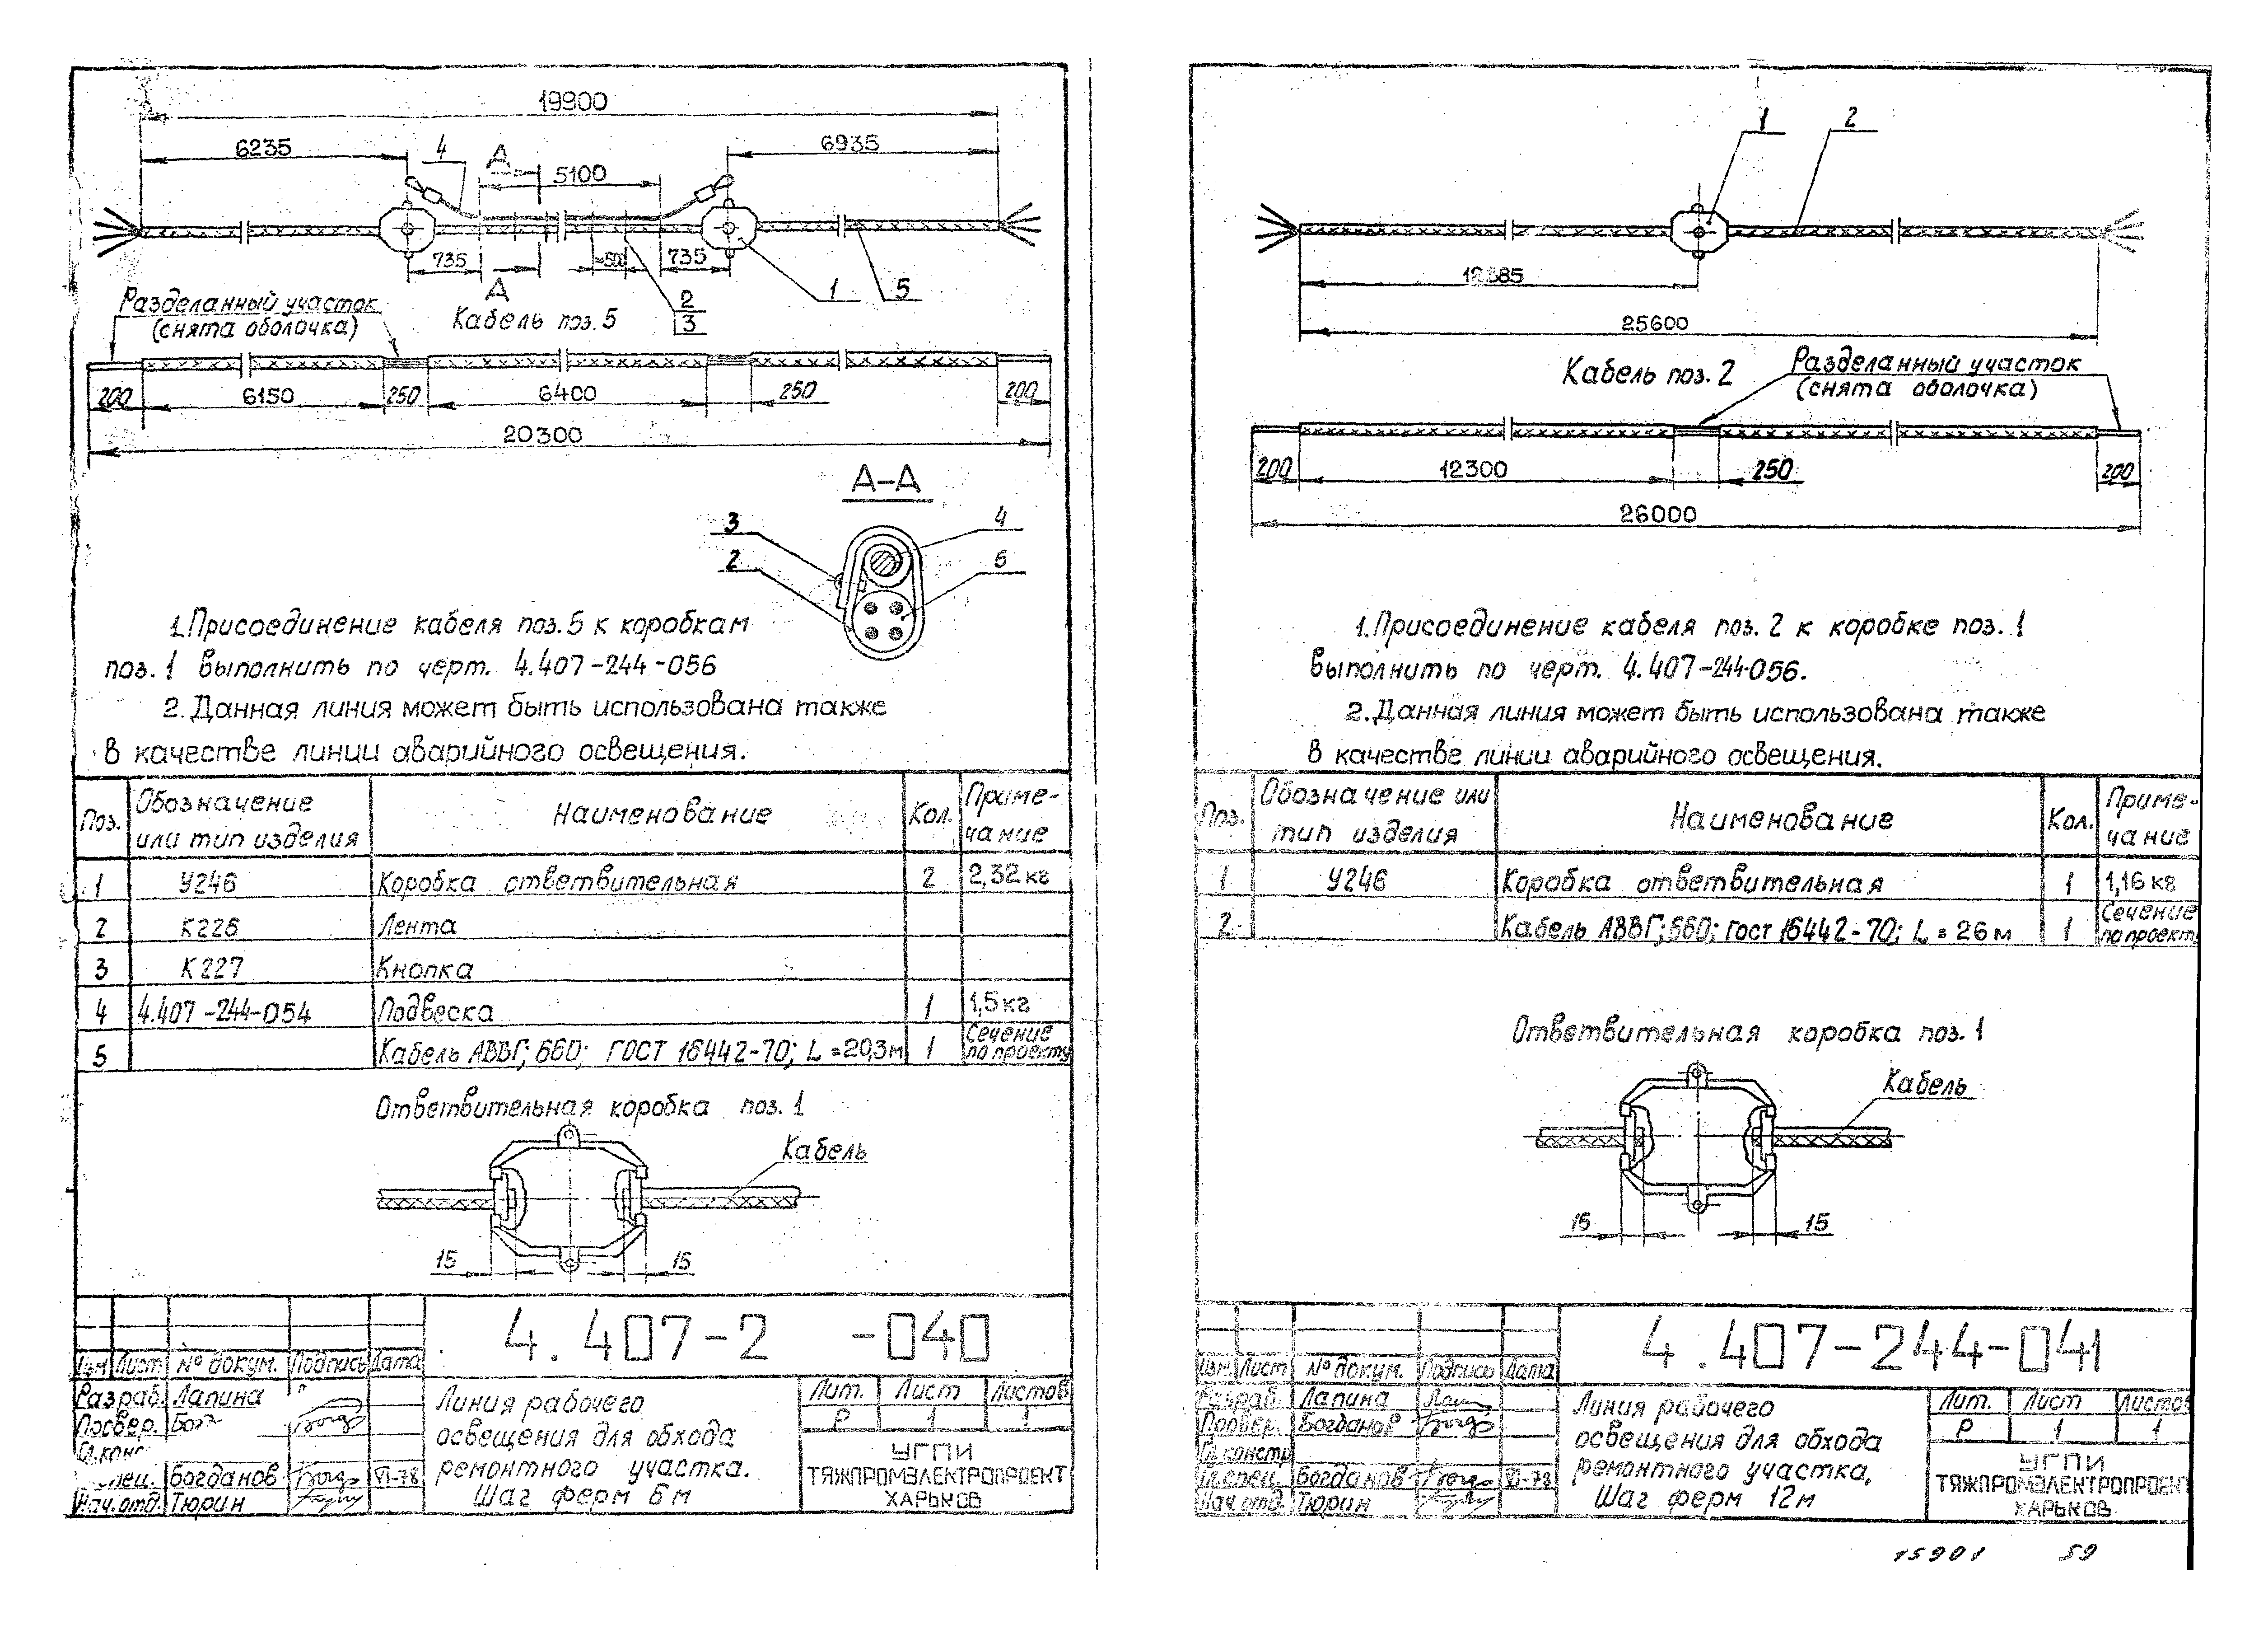 19900
6235
4
А
5100
6935
735
≈500
735
А
1
5
2
3
Разделанный участок
(снята оболочка)
Кабель поз. 5
200
6150
250
6400
250
200
20300
А-А
3
4
2
5
1. Присоединение кабеля поз. 5 к коробкам
поз. 1 выполнить по черт. 4.407-244-056
2. Данная линия может быть использована также
в качестве линии аварийного освещения.
Поз. Обозначение или тип изделия Наименование Кол. Приме-чание
1 У246 Коробка ответвительная 2 2,32 кг
2 К226 Лента
3 К227 Кнопка
4 4.407-244-054 Подвеска 1 1,5 кг
5 Кабель АВВГ; 660; ГОСТ 16442-70; L = 20,3 м 1 Сечение по проекту
Ответвительная коробка поз. 1
Кабель
15
15
4.407-2 -040
Изм Лист № докум. Подпись Дата
Разраб. Лапина
Провер.
Гл. конс
пец. Богданов VI-78
Нач. отд. Тюрин
Линия рабочего
освещения для обхода
ремонтного участка.
Шаг ферм 6 м
Лит. Лист Листов
Р 1 1
УГПИ
ТЯЖПРОМЭЛЕКТРОПРОЕКТ
ХАРЬКОВ
1
2
25600
Кабель поз. 2
Разделанный участок
(снята оболочка)
200
12300
250
200
26000
1. Присоединение кабеля поз. 2 к коробке поз. 1
выполнить по черт. 4.407-244-056.
2. Данная линия может быть использована также
в качестве линии аварийного освещения.
Поз. Обозначение или тип изделия Наименование Кол. Приме-чание
1 У246 Коробка ответвительная 1 1,16 кг
2 Кабель АВВГ; 660; Гост 16442-70; L = 26 м 1 Сечение по проект
Ответвительная коробка поз. 1
Кабель
15
15
4.407-244-041
Изм. Лист № докум. Подпись Дата
Разраб. Лапина
Провер. Богданов
Гл. констр
Гл. спец. Богданов VI-78
Нач. отд. Тюрин
Линия рабочего
освещения для обхода
ремонтного участка,
Шаг ферм 12 м
Лит. Лист Листов
Р 1 1
УГПИ
ТЯЖПРОМЭЛЕКТРОПРОЕКТ
ХАРЬКОВ
15901 59